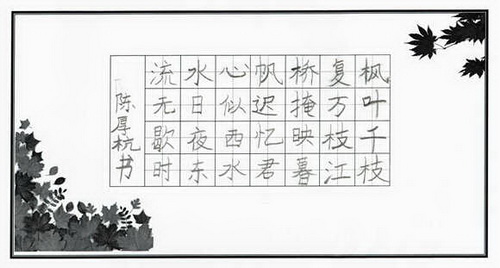 枫叶千枝
复万枝江
桥掩映暮
帆迟忆君
心似西水
水日夜东
流无歇时
陈厚杭书